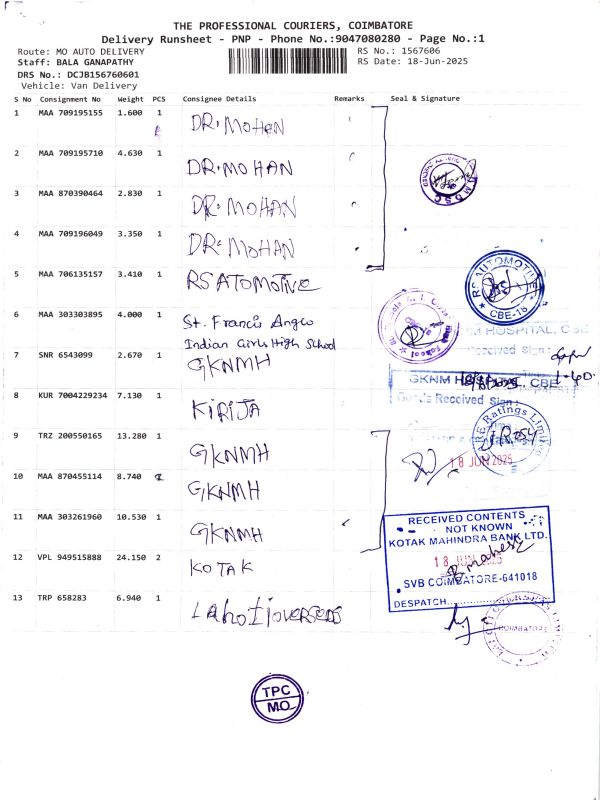 THE PROFESSIONAL COURIERS, COIMBATORE
Delivery Runsheet - PNP - Phone No.:9047080280 - Page No.:1
Route: MO AUTO DELIVERY
Staff: BALA GANAPATHY
DRS No.: DCJB156760601
Vehicle: Van Delivery
RS No.: 1567606
RS Date: 18-Jun-2025
S No Consignment No Weight PCS Consignee Details Remarks Seal & Signature
1 MAA 709195155 1.600 1 DR. MOHAN
2 MAA 709195710 4.630 1 DR. MOHAN
3 MAA 870390464 2.830 1 DR. MOHAN
4 MAA 709196049 3.350 1 DR. MOHAN
5 MAA 706135157 3.410 1 RS ATOMOTIVE
RS AUTOMOTIVE
CBE-18
6 MAA 303303895 4.000 1 St. Francis Anglo
Indian Girls High School
7 SNR 6543099 2.670 1 GKNMH
HOSPITAL, CBE
Received Sign:
GKNM HOSPITAL, CBE
1.40
Goods Received Sign:
8 KUR 7004229234 7.130 1 KIRIJA
Ratings Limited
9 TRZ 200550165 13.280 1 GKNMH
18 JUN 2025
10 MAA 870455114 8.740 GKNMH
11 MAA 303261960 10.530 1 GKNMH
RECEIVED CONTENTS
NOT KNOWN
KOTAK MAHINDRA BANK LTD.
18 JUN 2025
SVB COIMBATORE-641018
DESPATCH
12 VPL 949515888 24.150 2 KOTAK
13 TRP 658283 6.940 1 Lahoti overseas
COIMBATORE
TPC
MO